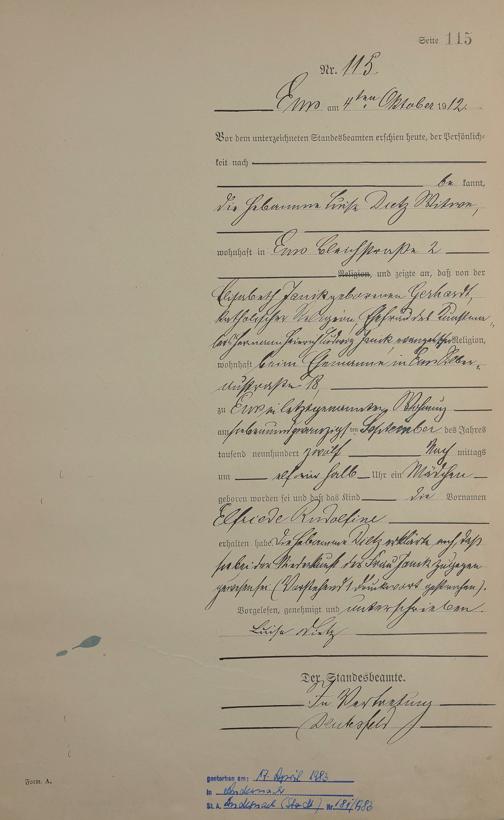 Seite 115
Nr. 115.
Ems am 4ten Oktober 1912.
Vor dem unterzeichneten Standesbeamten erschien heute, der Persönlich-
keit nach
be kannt,
die Hebamme Luise Dietz Witwe,
wohnhaft in Ems Bleichstraße 2
Religion, und zeigte an, daß von der
Elisabeth Janik geborenen Gerhardt,
katholischer Religion, Ehefrau des
Hermann Heinrich Ludwig Janik, evangelischer Religion,
wohnhaft beim Ehemanne in Ems,
straße 18,
zu Ems in letztgenannter Wohnung
am siebenundzwanzigsten September des Jahres
tausend neunhundert zwölf Nach mittags
um elf ein halb Uhr ein Mädchen
geboren worden sei und daß das Kind die Vornamen
Elfriede Rudolfine
erhalten habe. Die Hebamme Dietz erklärte noch daß
sie bei der Niederkunft der Frau Janik zugegen
gewesen sei. (Vorstehend 1 Druckwort gestrichen).
Vorgelesen, genehmigt und unterschrieben.
Luise Dietz
Der Standesbeamte.
In Vertretung
Form. A.
gestorben am: 17. April 1983
in Andernach
St. A. Andernach (Stadt) Nr. 181/1983